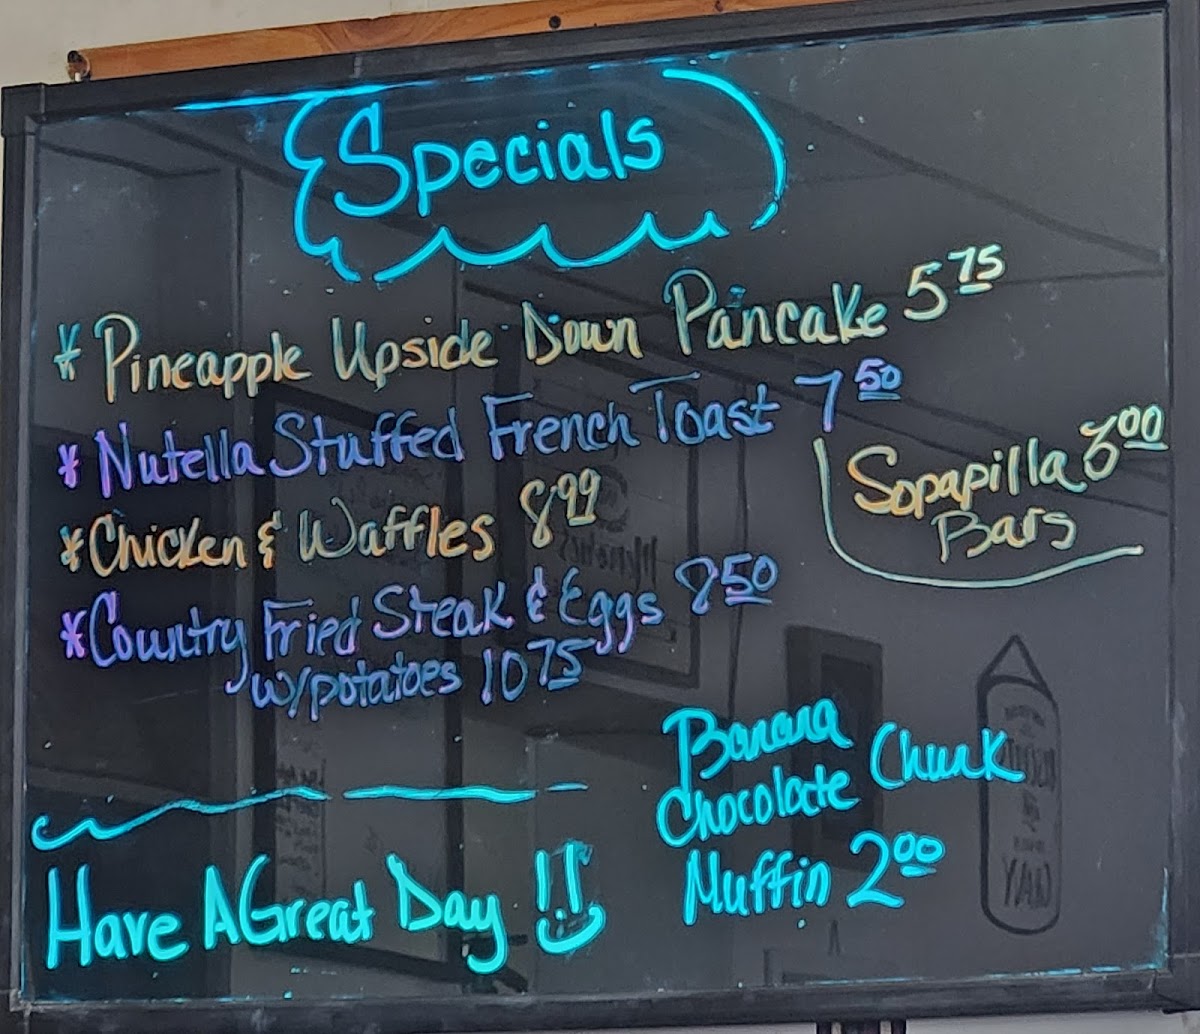 Specials
* Pineapple Upside Down Pancake 5 75
* Nutella Stuffed French Toast 7 50
* Chicken & Waffles 8 99
Sopapilla 3 00
Bars
* Country Fried Steak & Eggs 8 50
w/potatoes 10 75
Banana
Chocolate Chunk
Muffin 2 00
Have A Great Day !!